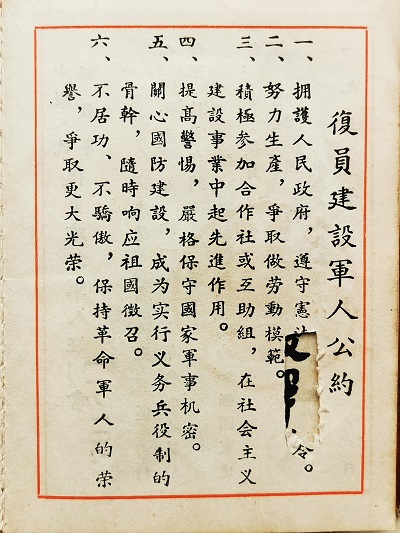 復員建設軍人公約
一、擁護人民政府，遵守憲令。
二、努力生產，爭取做勞動模範。
三、積極参加合作社或互助組，在社会主义
建設事業中起先進作用。
四、提高警惕，嚴格保守國家軍事机密。
五、關心國防建設，成为实行义务兵役制的
骨幹，隨時响应祖國徵召。
六、不居功、不驕傲，保持革命軍人的荣
譽，爭取更大光荣。